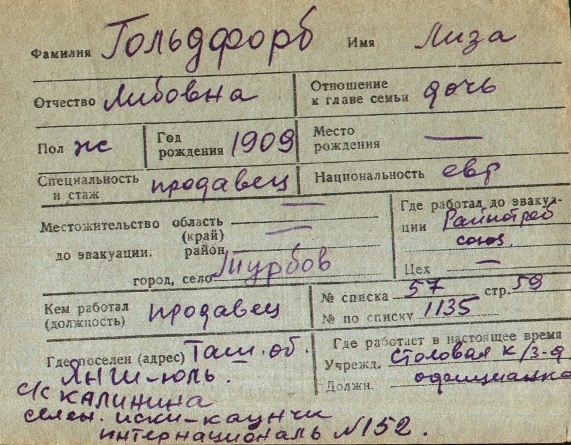 Фамилия Гольдфорб Имя Лиза
Отчество Либовна Отношение к главе семьи дочь
Пол ж Год рождения 1909 Место рождения —
Специальность и стаж продавец Национальность евр
Местожительство до эвакуации. область (край) —
район —
город, село Турбов
Где работал до эвакуации Райпотребсоюз.
Цех —
Кем работал (должность) продавец
№ списка 57 стр. 59
№ по списку 1135
Где поселен (адрес) Таш. об.
ЯНГИ-ЮЛЬ.
с/с КАЛИНИНА
селен. иски-каунчи
интернациональ №152.
Где работает в настоящее время
Учрежд. Столовая к/з-а
Должн. официантка